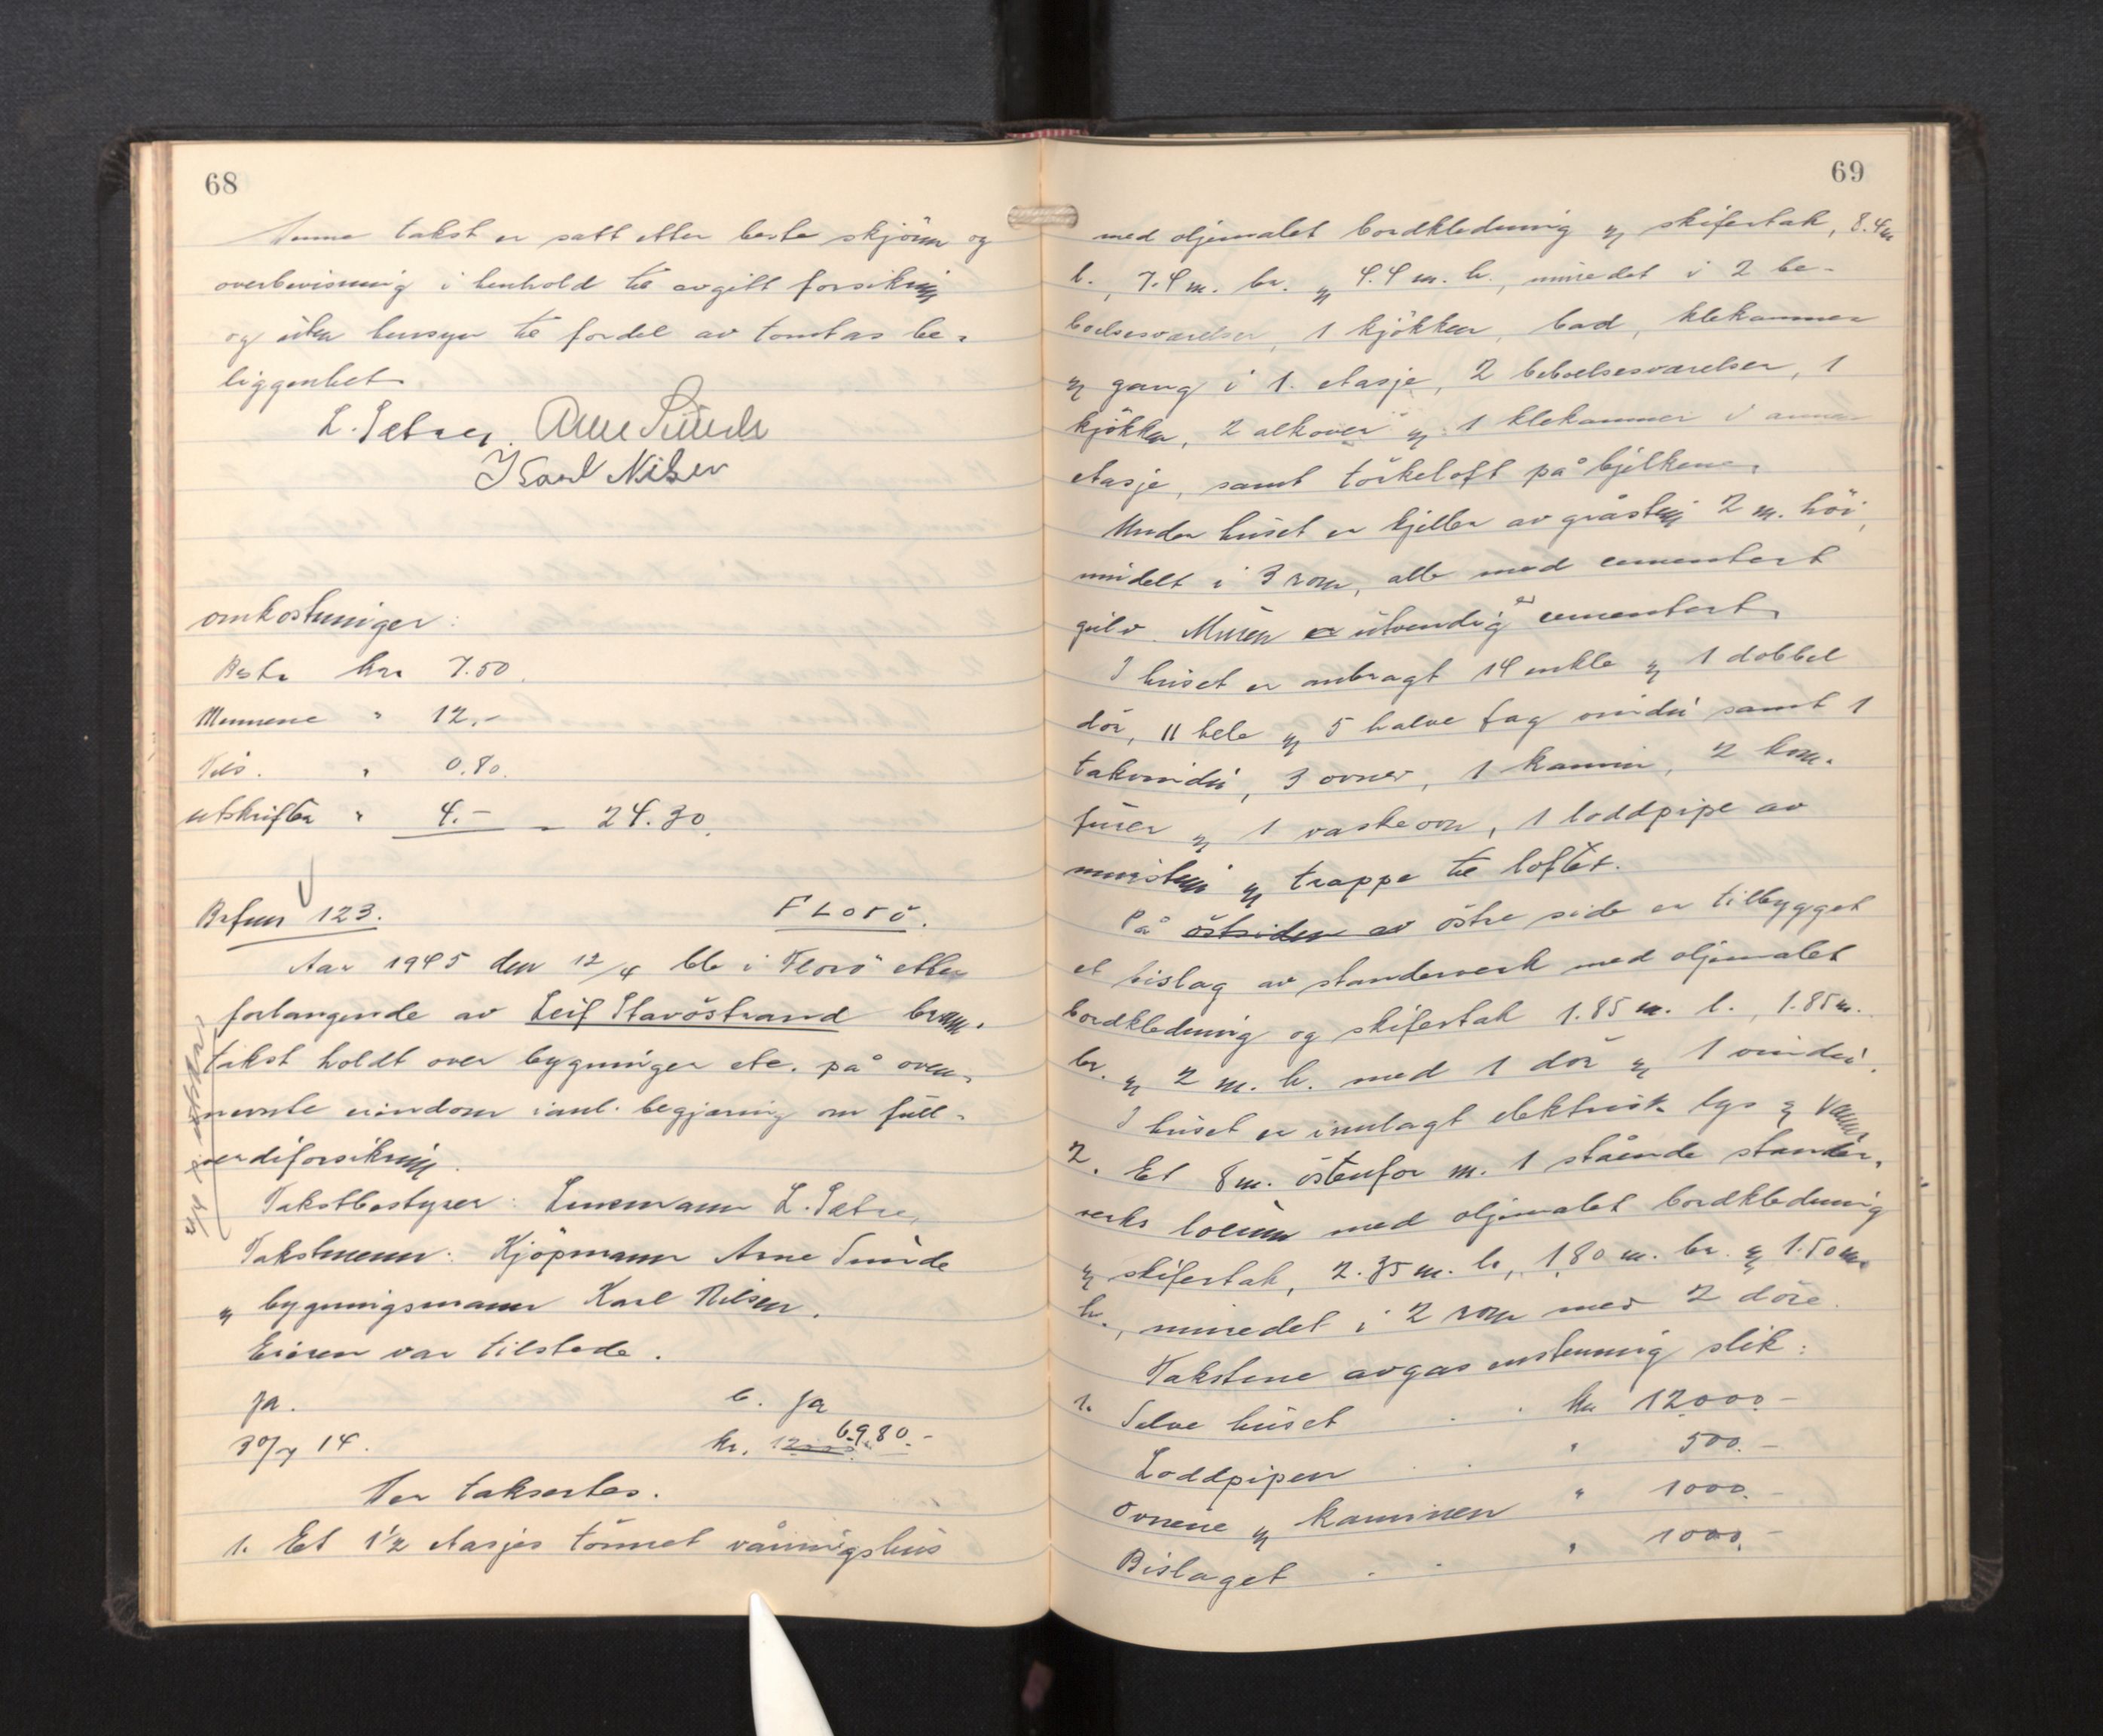 68
Denne takst er satt etter beste skjönn og
overbevisning i henhold til avgitt forsikring
og uten hensyn til fordel av tomtas be-
liggenhet.
L. Sætren. Arne Sunde
Karl Nilsen
omkostninger:
Best. kr. 7.50.
Mennene " 12.-
Tils. " 0.80.
utskrifter " 4.- = 24.30.
Bnfur 123. FLORÖ.
Aar 1945 den 12/4 ble i Florö etter
forlangende av Leif Stavöstrand brann-
takst holdt over bygninger etc. på oven-
nevnte eiendom i anl. begjæring om full-
verdiforsikring.
Takstbestyrer: Lensmann L. Sætren
Takstmenn: Kjöpmann Arne Sunde
og bygningsmann Karl Nilsen.
Eieren var tilstede.
Ja. b. Ja
30/7 14. kr. 12000. 6980.-
Der takseres.
1. Et 1½ etasjes tömret våningshus
69
med oljemalet bordkledning og skifertak, 8.4 m
l., 7.4 m. br. og 4.4 m. h., innredet i 2 be-
boelsesværelser, 1 kjökken, bad, klekammer
og gang i 1. etasje, 2 beboelsesværelser, 1
kjökken, 2 alkover og 1 klekammer i annen
etasje, samt törkeloft på bjelkene.
Under huset er kjeller av gråstein 2 m. höi,
inndelt i 3 rom, alle med cementert
gulv. Muren er utvendig er cementert.
I huset er anbragt 14 enkle og 1 dobbel
dör, 11 hele og 5 halve fag vindu samt 1
takvindu, 3 ovner, 1 kamin, 2 kom-
fürer og 1 vaskeovn, 1 loddpipe av
murstein og trappe til loftet.
På östsiden av östre side er tilbygget
et bislag av standerverk med oljemalet
bordkledning og skifertak 1.85 m. l., 1.85 m.
br. og 2 m. h. med 1 dör og 1 vindu.
I huset er innlagt elektrisk lys og vann
2. Et 8 m. östenfor nr. 1 stående stander-
verks locum med oljemalet bordkledning
og skifertak, 2.35 m. l., 1.80 m. br. og 1.50 m.
h., innredet i 2 rom med 2 döre.
Takstene avgas enstemmig slik:
1. Selve huset . . kr 12000.-
Loddpipen . . " 500.-
Ovnene og kaminen " 1000.-
Bislaget . . " 1000.-